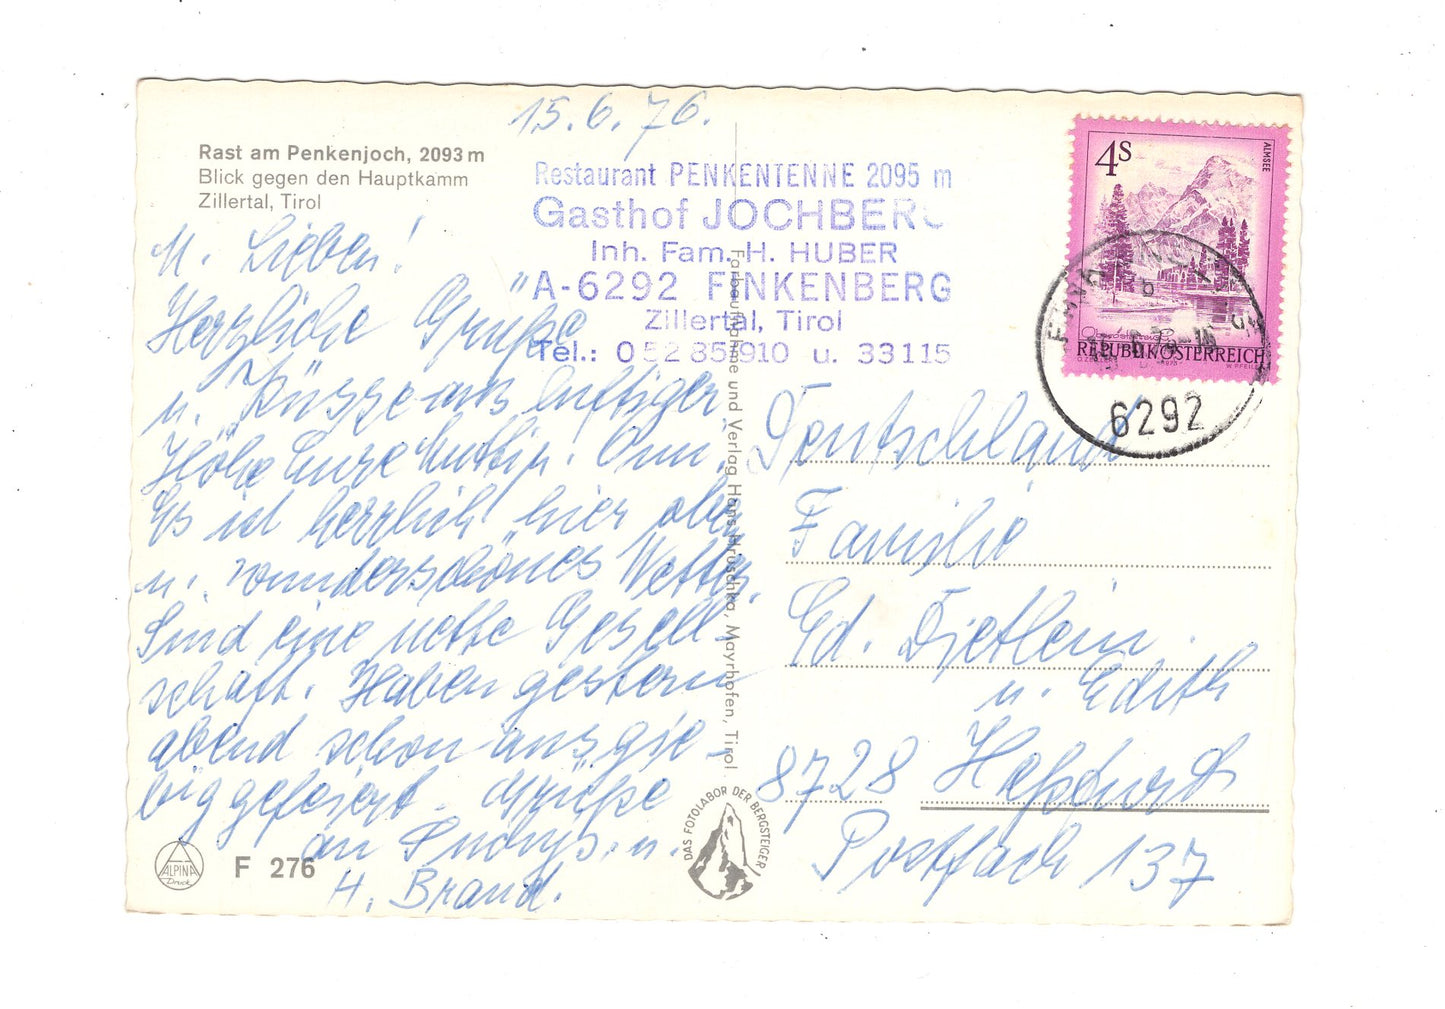 15.6.76.
Rast am Penkenjoch, 2093 m
Blick gegen den Hauptkamm
Zillertal, Tirol
Restaurant PENKENTENNE 2095 m
Gasthof JOCHBERG
Inh. Fam. H. HUBER
A-6292 FINKENBERG
Zillertal, Tirol
Tel.: 0 52 85/910 u. 33115
M. Lieben!
Herzliche Grüße
u. Küsse aus luftiger
Höhe Eure Mutti u. Omi.
Es ist herrlich hier oben
u. wunderschönes Wetter.
Sind eine nette Gesell-
schaft. Haben gestern
abend schon ausgie-
big gefeiert. Grüße
an u.
H. Brand.
ALPINA
Druck
F 276
Farbaufnahme und Verlag Hans Hruschka, Mayrhofen, Tirol
DAS FOTOLABOR DER BERGSTEIGER
4S
ALMSEE
REPUBLIK ÖSTERREICH
6292
Deutschland
Familie
Ed. Dietlein
u. Edith
8728 Haßfurt
Postfach 137